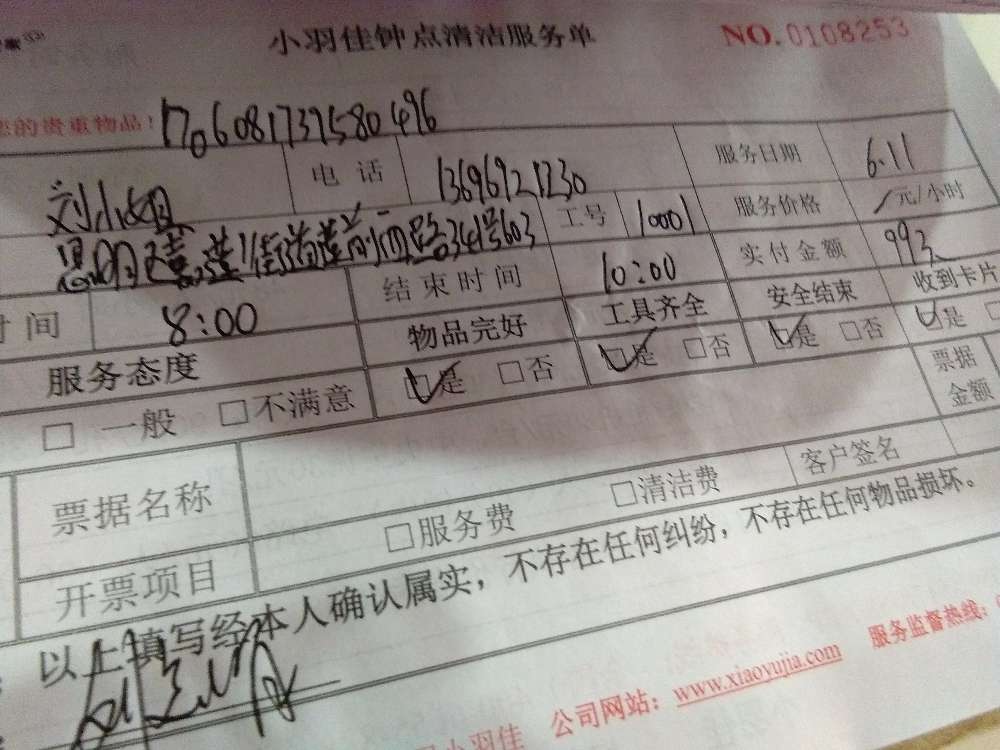 小羽佳钟点清洁服务单 NO.0108253
的贵重物品! 1706081737580496
刘小姐 电话 13696921730 服务日期 6.11
341号603 工号 10001 服务价格 /元/小时
时间 8:00 结束时间 10:00 实付金额
服务态度 物品完好 工具齐全 安全结束 收到卡片
□ 一般 □不满意 □是 □否 □是 □否 □是 □否 □是
票据名称 票据金额
开票项目 □服务费 □清洁费 客户签名
以上填写经本人确认属实，不存在任何纠纷，不存在任何物品损坏。
小羽佳 公司网站：www.xiaoyujia.com 服务监督热线：